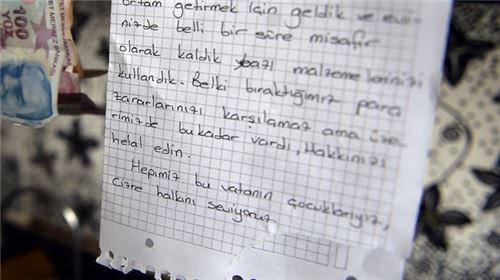 ortam getirmek için geldik ve evi-
nizde belli bir süre misafir
olarak kaldık bazı malzemelerinizi
kullandık. Belki bıraktığımız para
zararlarınızı karşılamaz ama üze-
rimizde bu kadar vardı, Hakkınızı
helal edin.
Hepimiz bu vatanın çocuklarıyız,
Cizre halkını seviyoruz
100
YÜZ